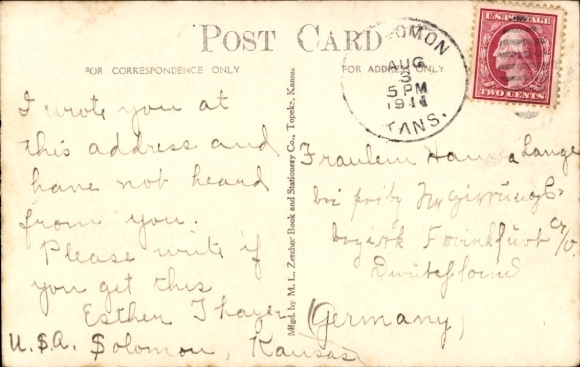 POST CARD
FOR CORRESPONDENCE ONLY
FOR ADDRESS ONLY
SOLOMON
AUG
3
5 PM
1911
KANS.
U.S. POSTAGE
TWO CENTS
I wrote you at
this address and
have not heard
from you.
Please write if
you get this
Esther Thayer
U.S.A. Solomon, Kansas
Mfgd. by M. L. Zercher Book and Stationery Co., Topeka, Kansas
Fraulein Hanna Lange
bei
Frankfurt a/O.
Deutschland
(Germany)